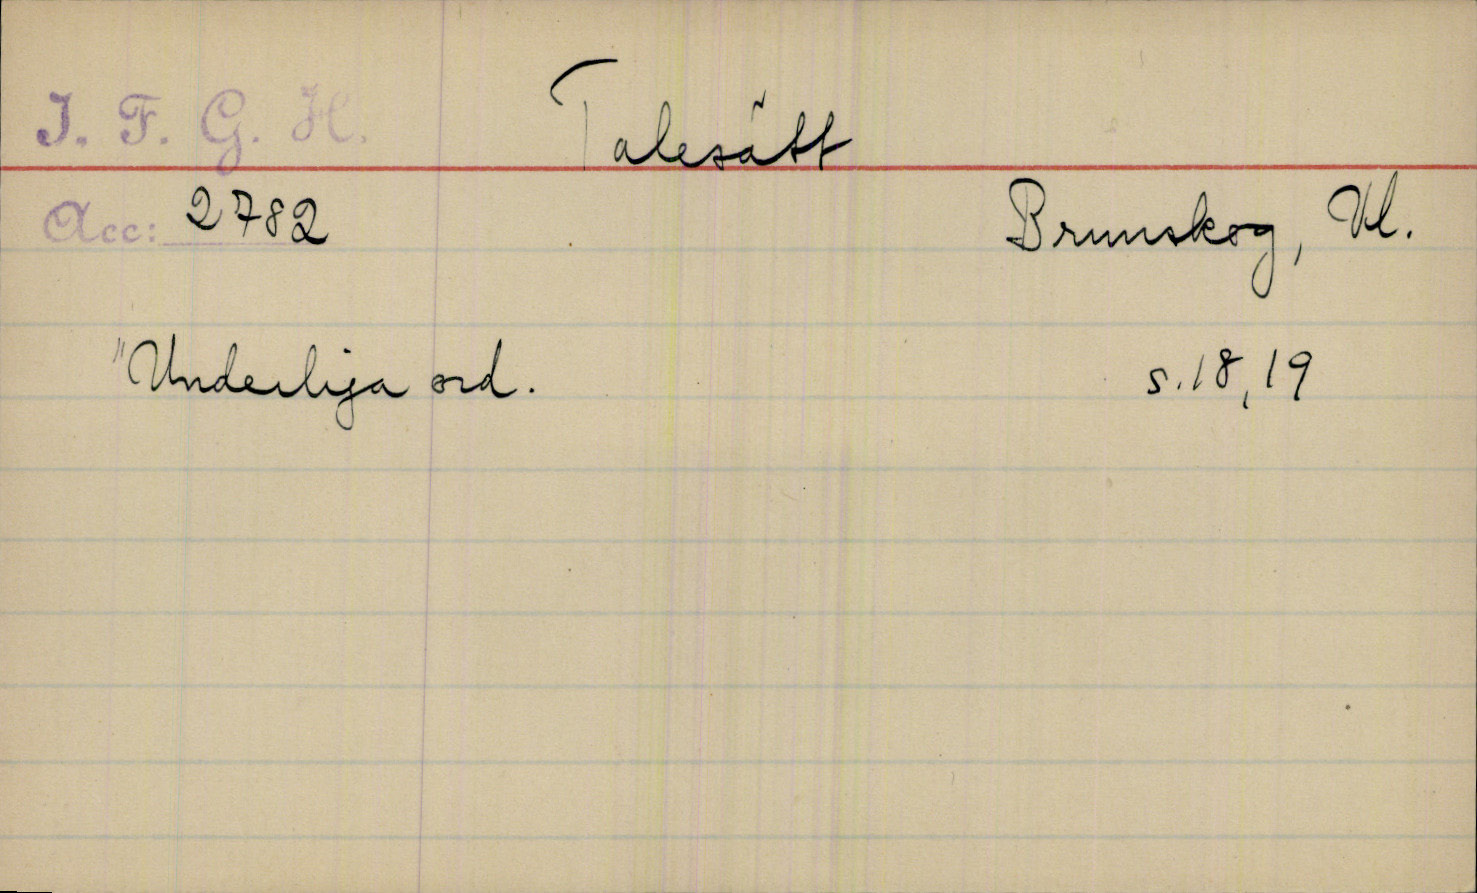 I. F. G. H.
Talesätt
Acc: 2782
Brunskog, Vl.
"Underliga ord.
s. 18, 19